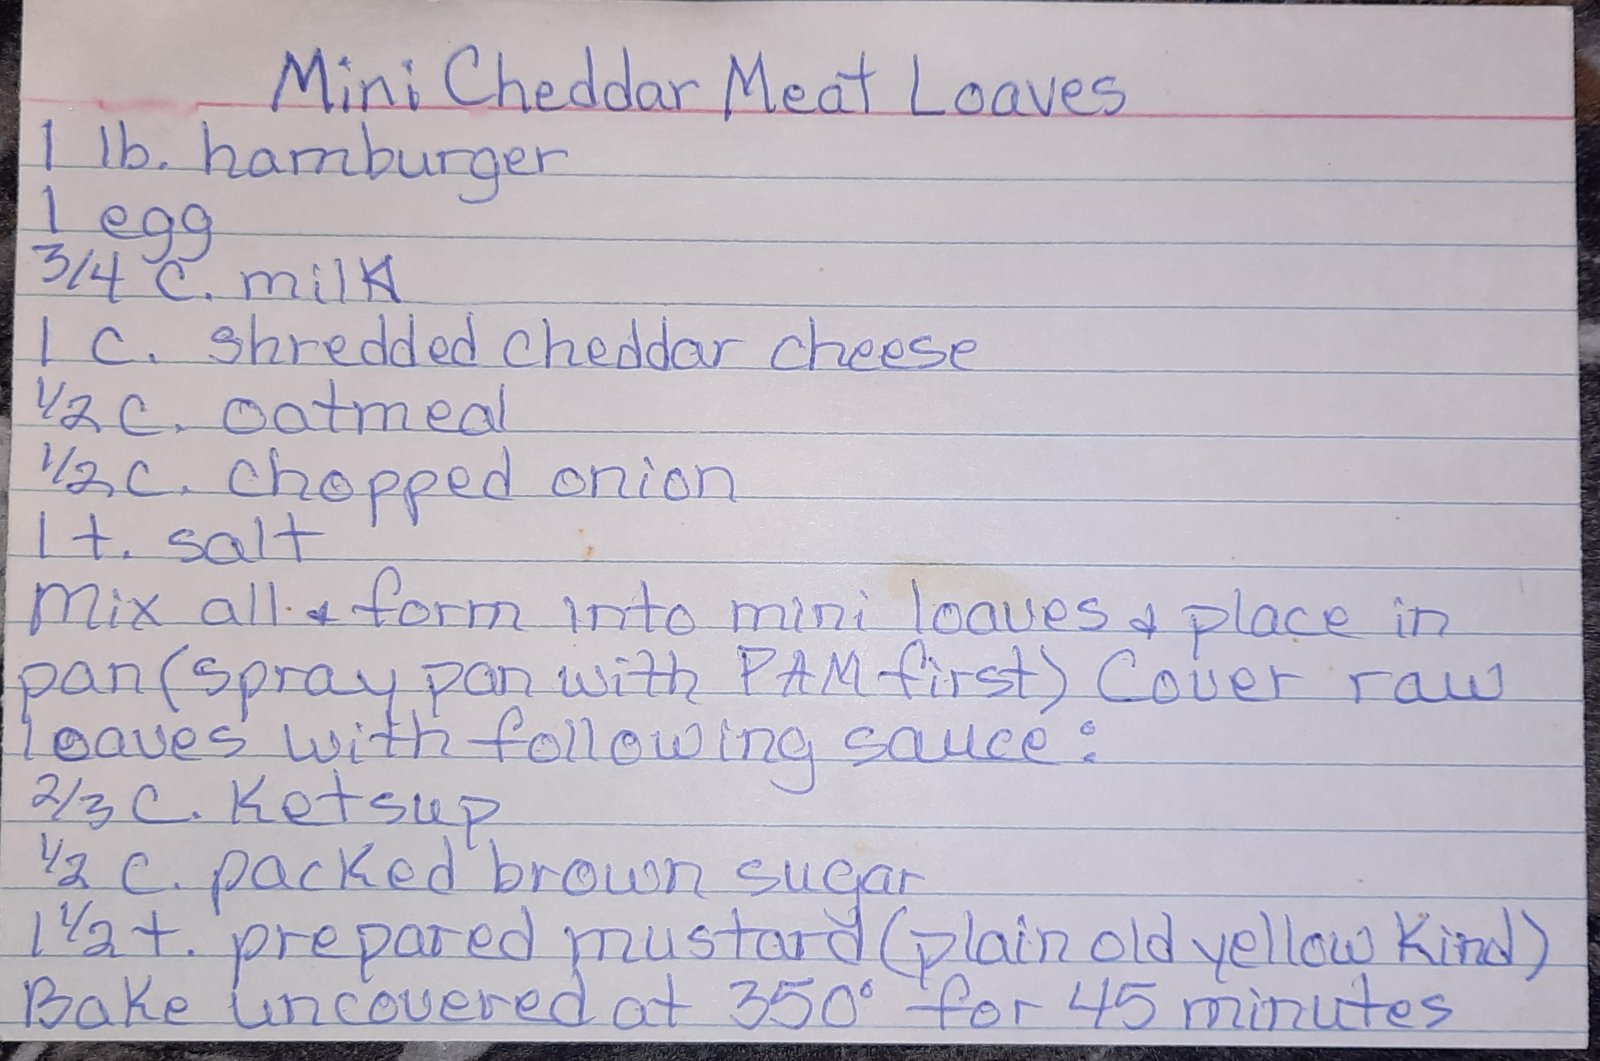 Mini Cheddar Meat Loaves
1 lb. hamburger
1 egg
3/4 C. milk
1 C. shredded cheddar cheese
1/2 C. oatmeal
1/2 C. chopped onion
1 t. salt
Mix all & form into mini loaves & place in
pan (spray pan with PAM first) Cover raw
loaves with following sauce:
2/3 C. Ketsup
1/2 C. packed brown sugar
1 1/2 t. prepared mustard (plain old yellow kind)
Bake uncovered at 350° for 45 minutes